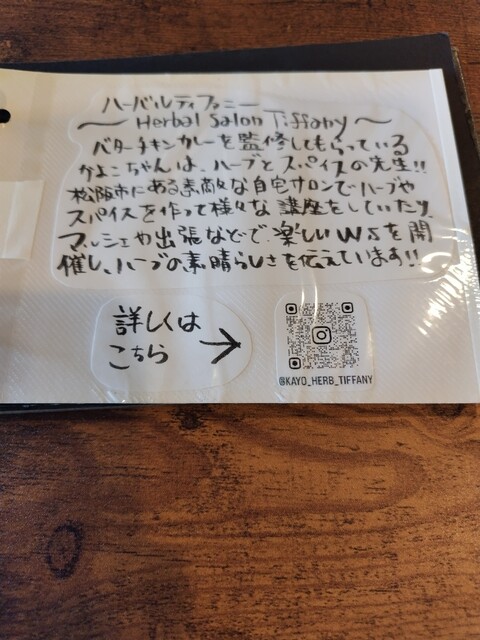 ハーバルティファニー
～Herbal Salon Tiffany～
バターチキンカレーを監修してもらっている
かよこちゃんは、ハーブとスパイスの先生!!
松阪市にある素敵な自宅サロンでハーブや
スパイスを作って様々な講座をしていたり、
マルシェや出張などで楽しいWSを開
催し、ハーブの素晴らしさを伝えています!!
詳しくは
こちら →
@KAYO_HERB_TIFFANY